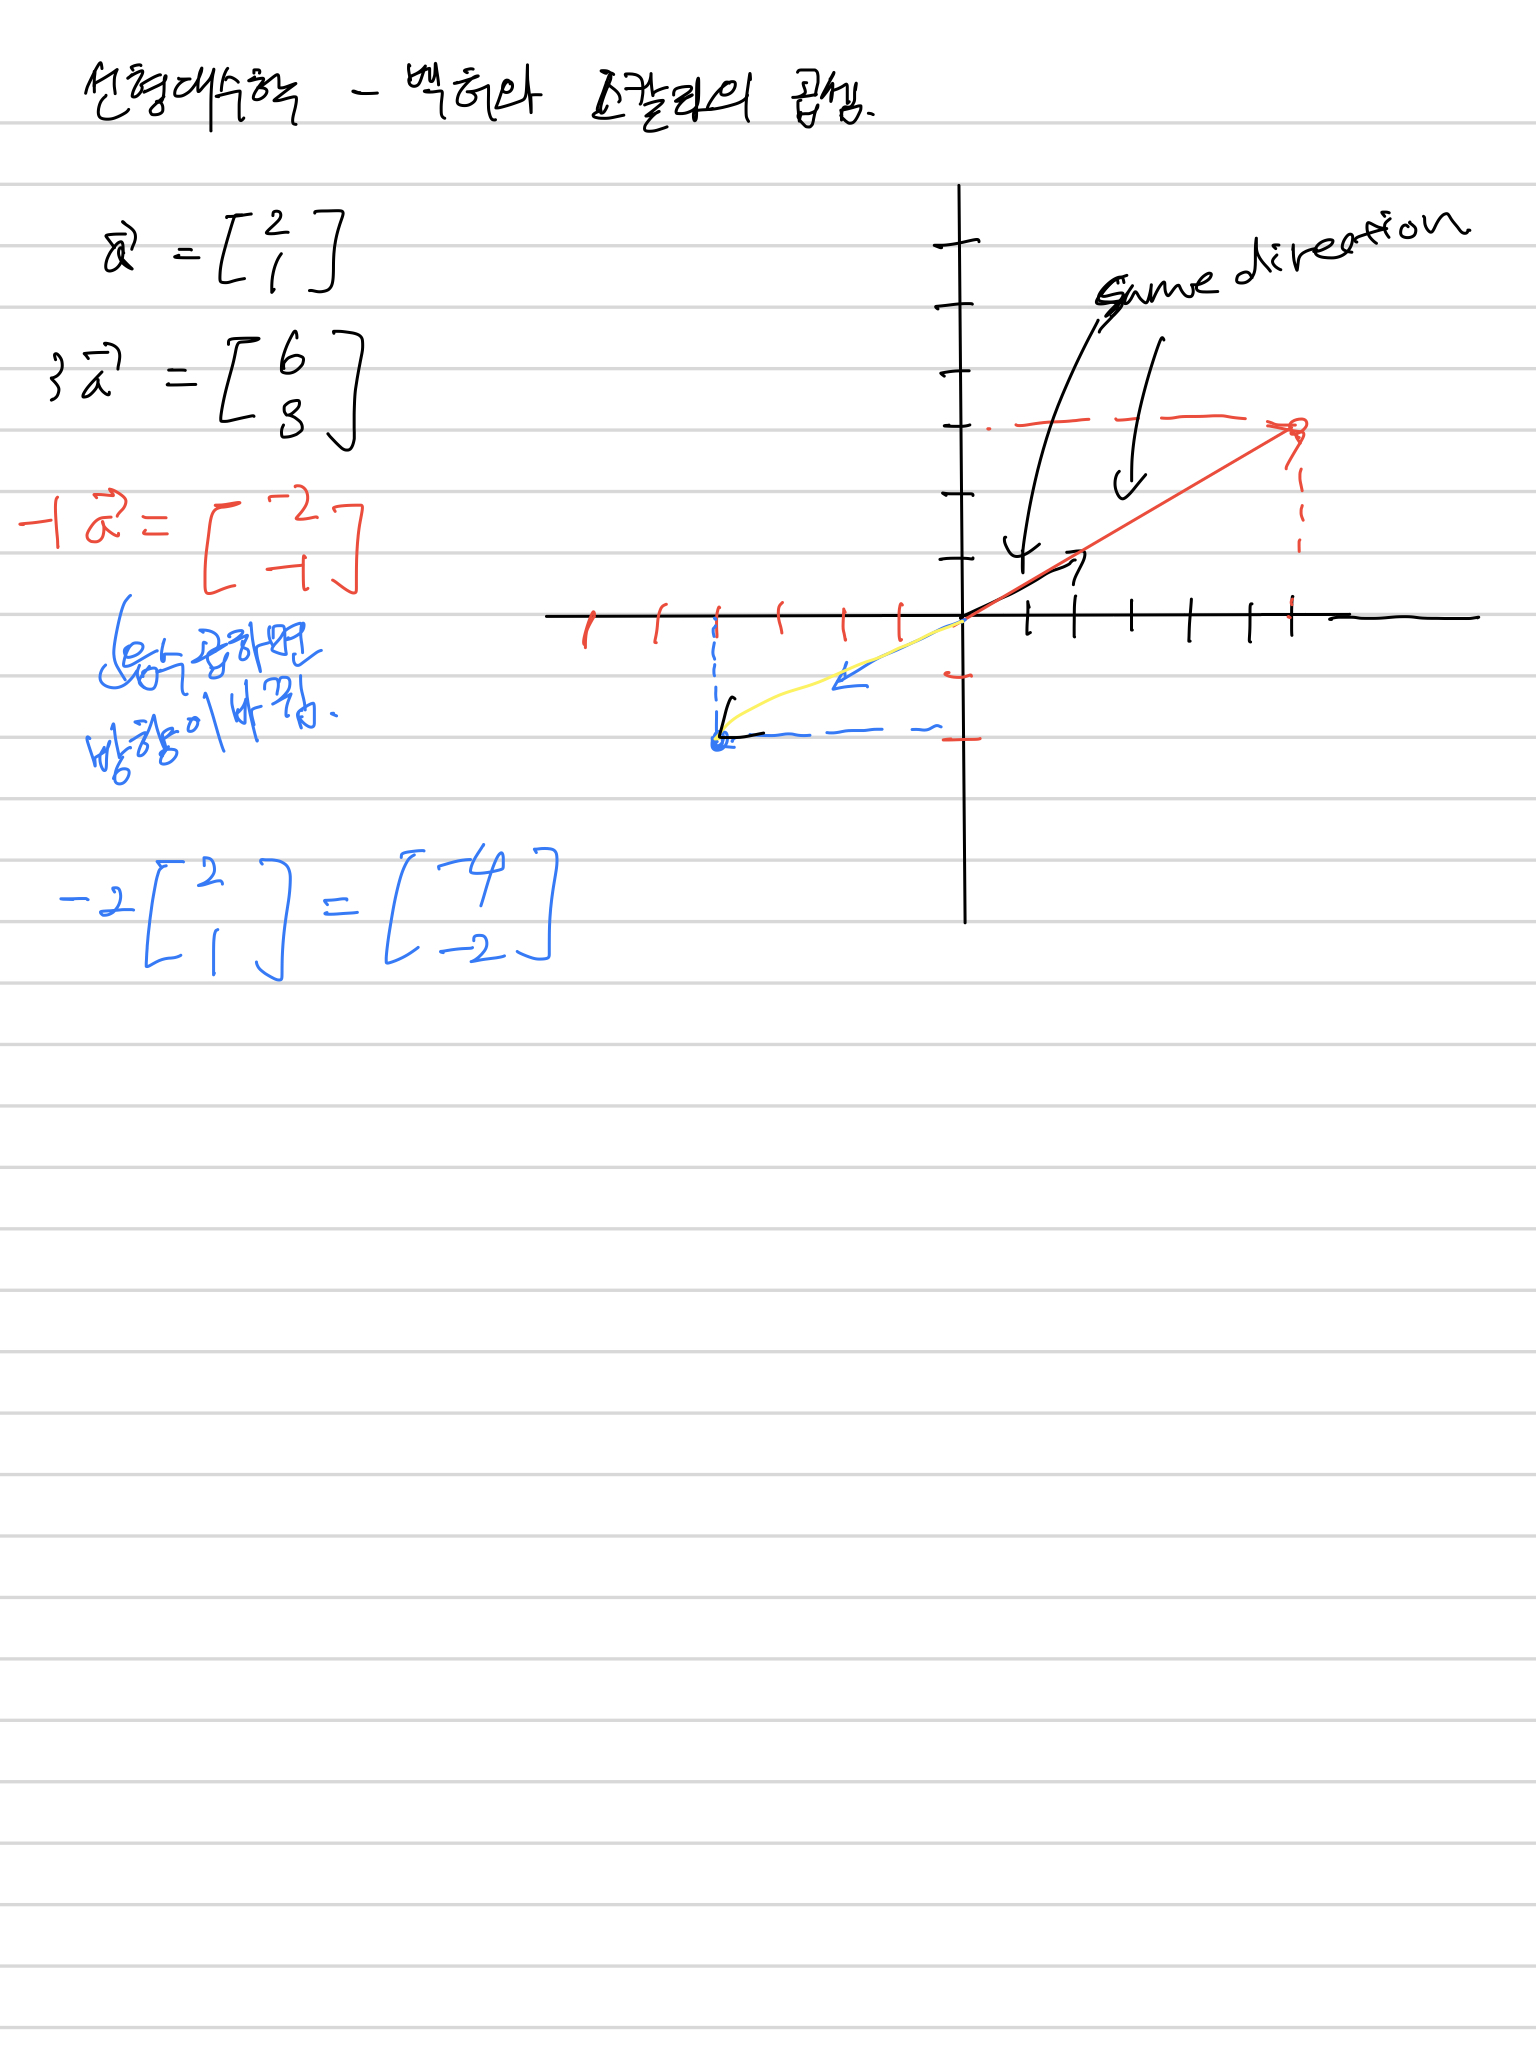 선형대수학 - 벡터와 스칼라의 곱셈.
a⃗ = [2 1]
3a⃗ = [6 3]
-1a⃗ = [-2 -1]
음수 곱하면
방향이 바뀜.
-2[2 1] = [-4 -2]
same direction